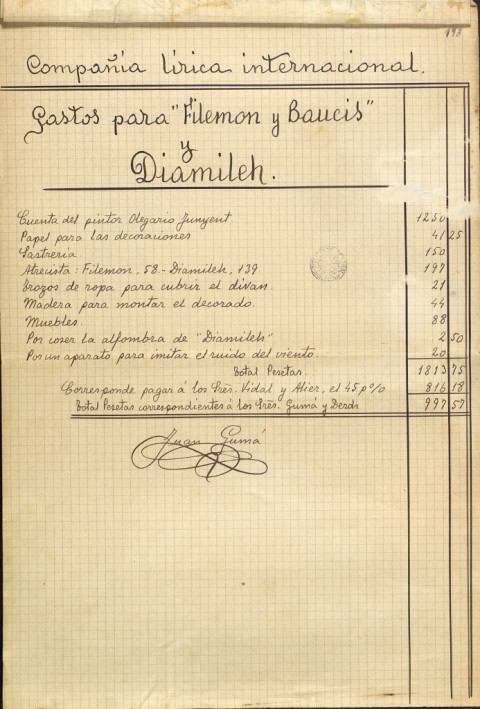 193
Compañía lírica internacional.
Gastos para "Filemon y Baucis"
y
Diamileh.
Cuenta del pintor Olegario Junyent 1250
Papel para las decoraciones 41 25
Sastrería 150
Atrecista: Filemon, 58.- Diamileh, 139. 197
Trozos de ropa para cubrir el divan. 21
Madera para montar el decorado. 44
Muebles. 88
Por coser la alfombra de "Diamileh" 2 50
Por un aparato para imitar el ruido del viento. 20
Total Pesetas. 1813 75
Corresponde pagar á los Srẽs. Vidal y Alier, el 45 p% 816 18
Total Pesetas correspondientes á los Srẽs. Gumá y Derds 997 57
Juan Gumá